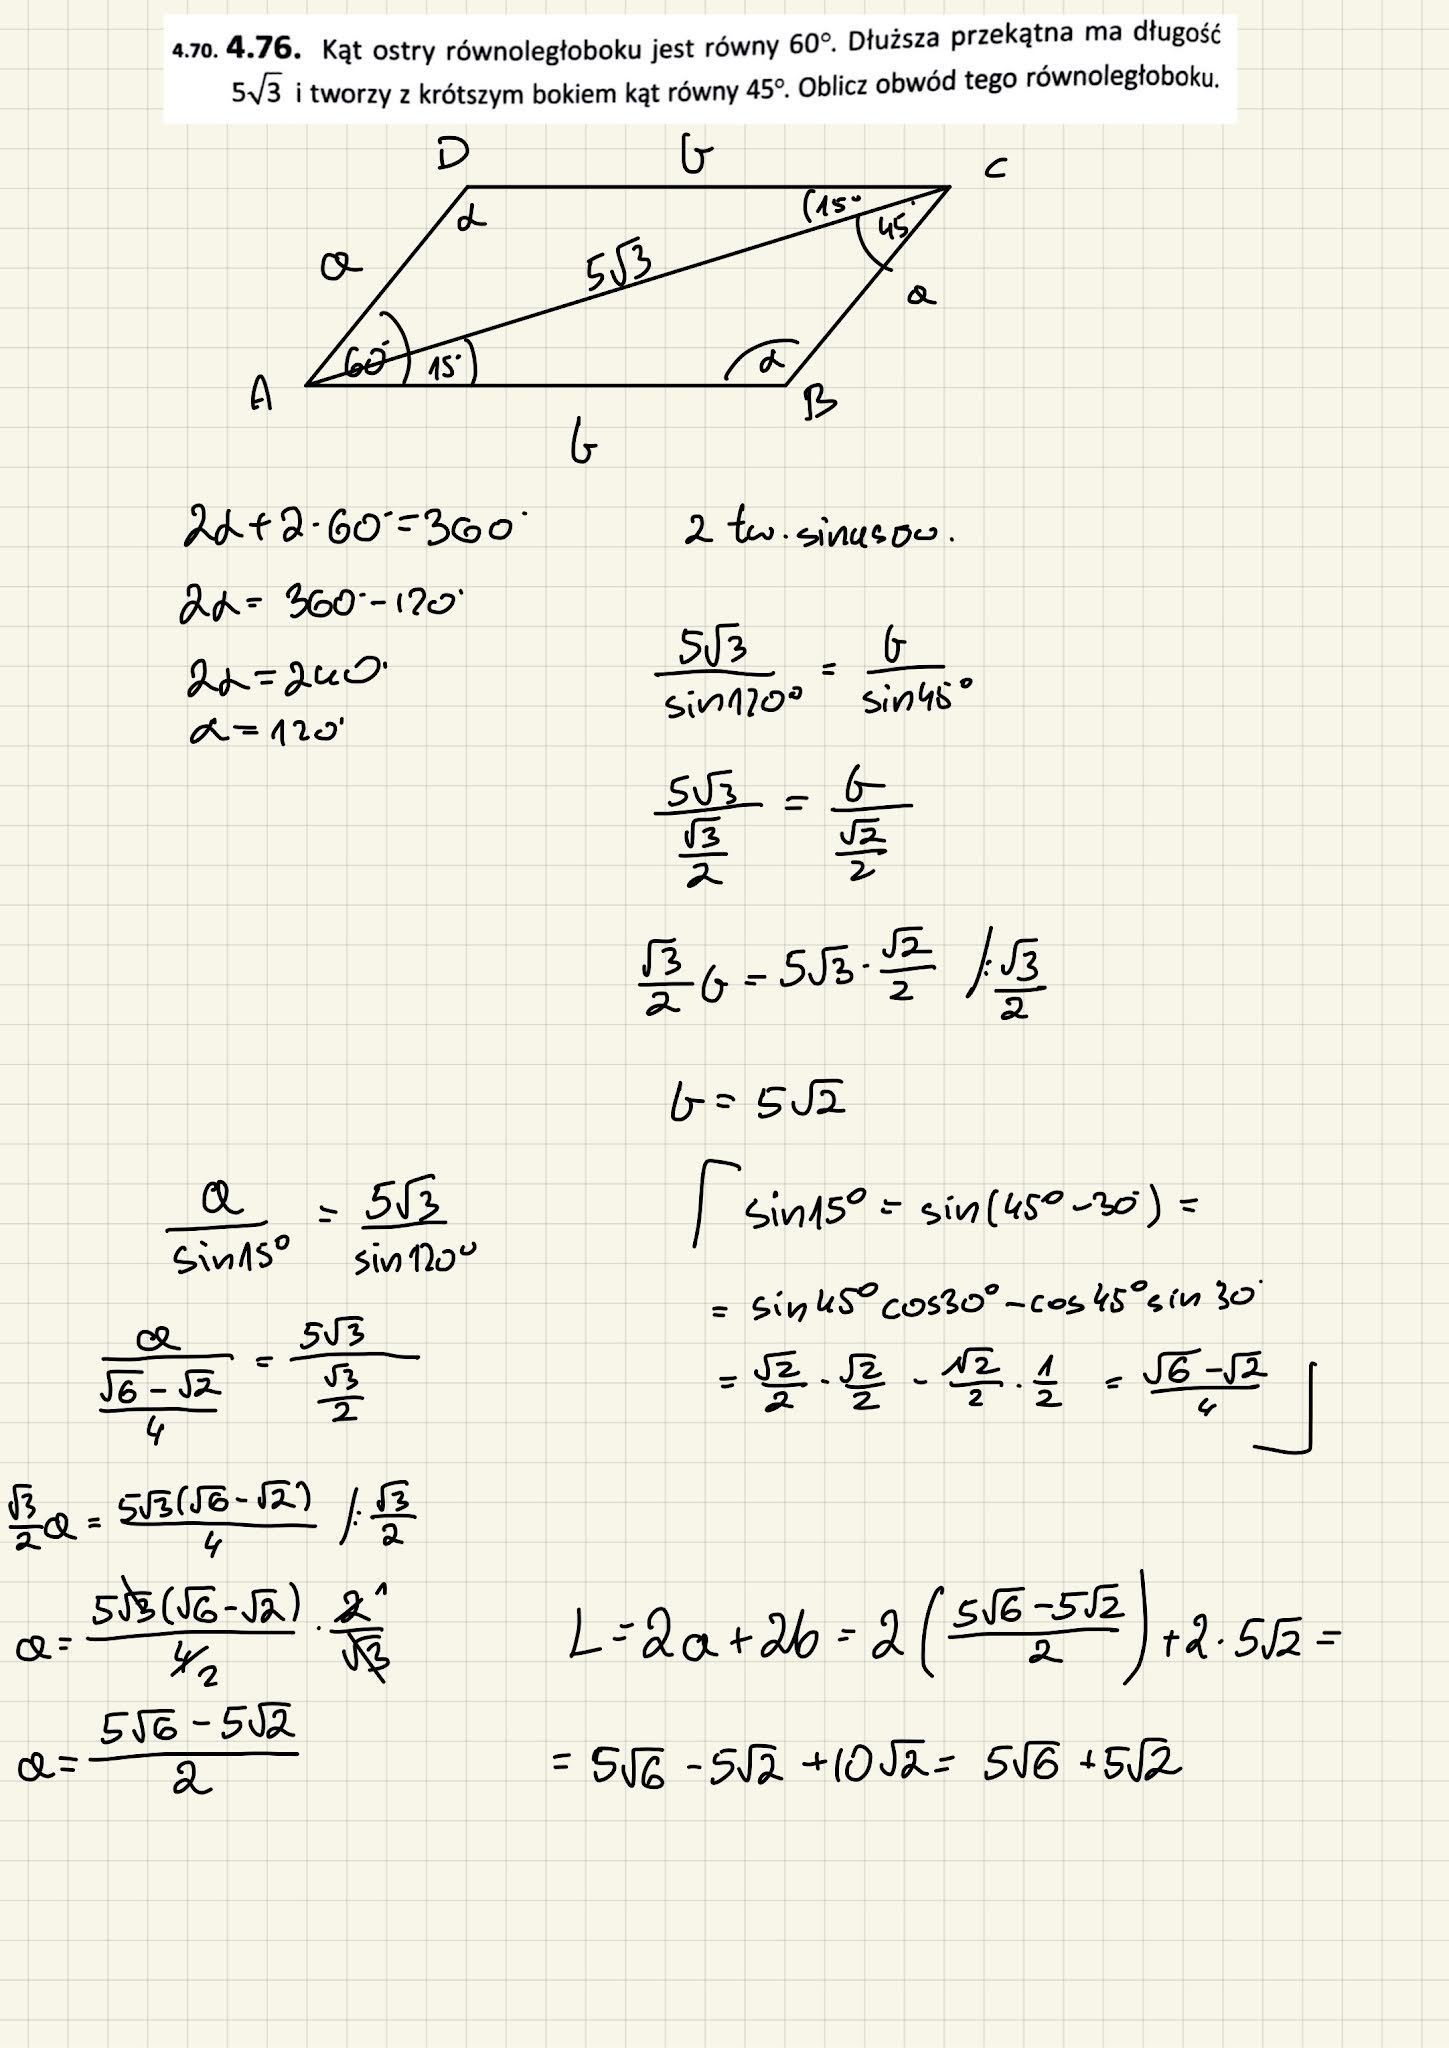 4.70. 4.76. Kąt ostry równoległoboku jest równy 60°. Dłuższa przekątna ma długość
5√3 i tworzy z krótszym bokiem kąt równy 45°. Oblicz obwód tego równoległoboku.
D b C
α 15° 45°
a 5√3 a
60° 15° α
A B
b
2α + 2·60° = 360°
2α = 360° - 120°
2α = 240°
α = 120°
z tw. sinusów.
5√3/sin120° = b/sin45°
5√3/(√3/2) = b/(√2/2)
√3/2 b = 5√3 · √2/2 /: √3/2
b = 5√2
a/sin15° = 5√3/sin120°
a/((√6 - √2)/4) = 5√3/(√3/2)
√3/2 a = 5√3(√6 - √2)/4 /: √3/2
a = 5√3(√6 - √2)/4 2 · 2 1/√3
a = (5√6 - 5√2)/2
sin15° = sin(45° - 30°) =
= sin45° cos30° - cos45° sin30°
= √2/2 · √2/2 - √2/2 · 1/2 = (√6 - √2)/4
L = 2a + 2b = 2((5√6 - 5√2)/2) + 2·5√2 =
= 5√6 - 5√2 + 10√2 = 5√6 + 5√2